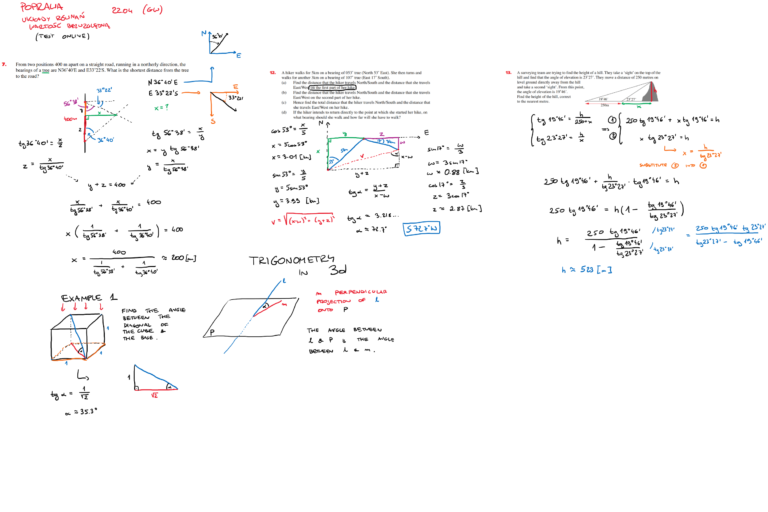 POPRAWA
2204 (GW)
UKŁADY RÓWNAŃ
WARTOŚĆ BEZWZGLĘDNA
(TEST ONLINE)
7. From two positions 400 m apart on a straight road, running in a northerly direction, the
bearings of a tree are N36°40'E and E33°22'S. What is the shortest distance from the tree
to the road?
N
36°40'
E
N 36°40' E
E 33°22' S
E
33°22'
S
56°38'
400
36°40'
x = ?
tg 36°40' = x/z
z = x / tg 36°40'
tg 56°38' = x/y
x = y tg 56°38'
y = x / tg 56°38'
y + z = 400
x / tg 56°38' + x / tg 36°40' = 400
x ( 1 / tg 56°38' + 1 / tg 36°40' ) = 400
x = 400 / ( 1 / tg 56°38' + 1 / tg 36°40' ) ≈ 200 [m]
EXAMPLE 1
FIND THE ANGLE
BETWEEN THE
DIAGONAL OF
THE CUBE &
THE BASE.
tg α = 1/√2
α ≈ 35.3°
1
√2
α
12. A hiker walks for 5km on a bearing of 053° true (North 53° East). She then turns and
walks for another 3km on a bearing of 107° true (East 17° South).
(a) Find the distance that the hiker travels North/South and the distance that she travels
East/West on the first part of her hike.
(b) Find the distance that the hiker travels North/South and the distance that she travels
East/West on the second part of her hike.
(c) Hence find the total distance that the hiker travels North/South and the distance that
she travels East/West on her hike.
(d) If the hiker intends to return directly to the point at which she started her hike, on
what bearing should she walk and how far will she have to walk?
N
E
cos 53° = x/5
x = 5 cos 53°
x = 3.01 [km]
sin 53° = y/5
y = 5 sin 53°
y = 3.99 [km]
sin 17° = w/3
w = 3 sin 17°
w = 0.88 [km]
cos 17° = z/3
z = 3 cos 17°
z = 2.87 [km]
y + z
x - w
tg α = (y+z)/(x-w)
v = √((x-w)² + (y+z)²)
tg α = 3.218...
α = 72.7°
TRIGONOMETRY
IN 3D
l
m
α
P
m PERPENDICULAR
PROJECTION OF l
ONTO P
THE ANGLE BETWEEN
l & P IS THE ANGLE
BETWEEN l & m.
A surveying team are trying to find the height of a hill. They take a 'sight' on the top of the
hill and find that the angle of elevation is 23°27'. They move a distance of 250 metres on
level ground directly away from the hill
and take a second 'sight'. From this point,
the angle of elevation is 19°46'.
Find the height of the hill, correct
to the nearest metre.
19°46'
23°27'
250m
tg 19°46' = h / (250+x) ①
tg 23°27' = h/x ②
=>
250 tg 19°46' + x tg 19°46' = h
x tg 23°27' = h
x = h / tg 23°27'
SUBSTITUTE ② INTO ①
250 tg 19°46' + h / tg 23°27' · tg 19°46' = h
250 tg 19°46' = h ( 1 - tg 19°46' / tg 23°27' )
h = 250 tg 19°46' / ( 1 - tg 19°46' / tg 23°27' ) /·tg 23°27' /·tg 23°27' = 250 tg 19°46' tg 23°27' / ( tg 23°27' - tg 19°46' )
h ≈ 523 [m]